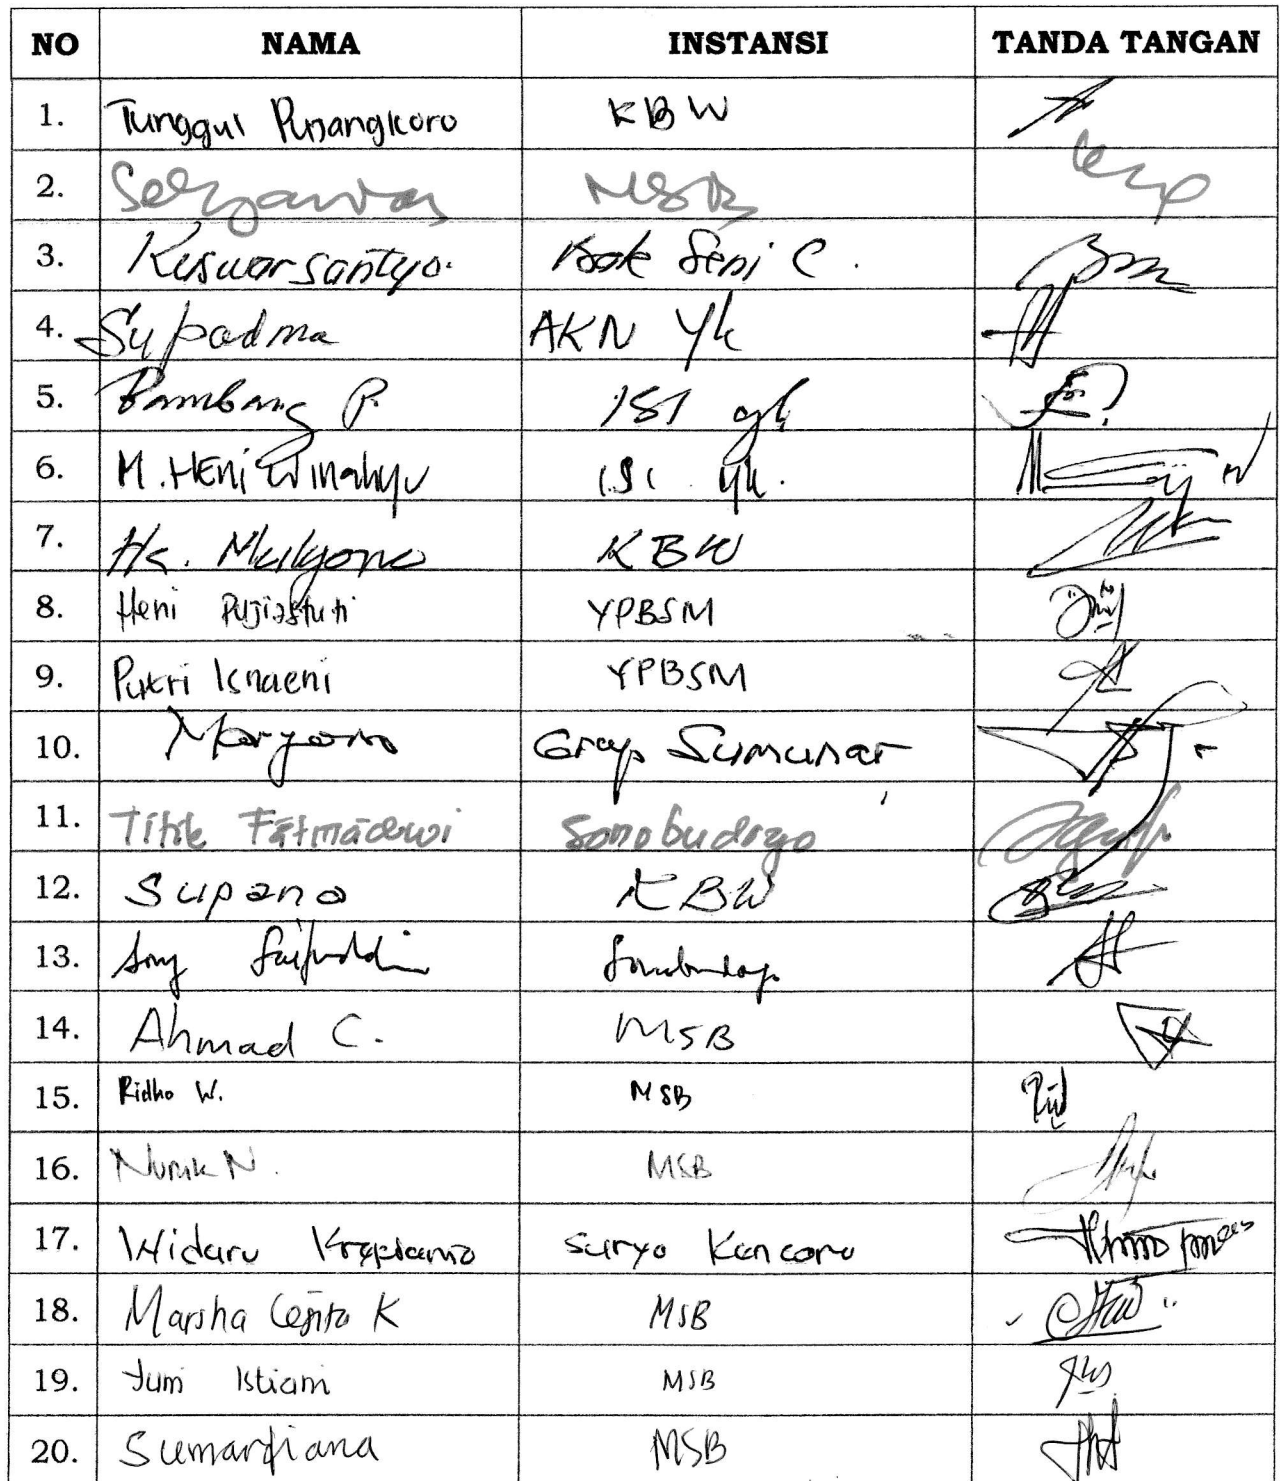 NO NAMA INSTANSI TANDA TANGAN
1. Tunggul Punangkoro KBW
2. Setyawan MSB
3. Kuswarsantyo. Seni C.
4. Supadma AKN Yk
5. Bambang P. ISI yk
6. M. HENi Winahyu ISI Yk.
7. Hs. Mulyono KBW
8. Heni Pujiastuti YPBSM
9. Putri Isnaeni YPBSM
10. Maryono Grup Sumunar
11. Titik Fatmadewi Sonobudoyo
12. Supano KBW
13. Saifuddin Sonobudoyo
14. Ahmad C. MSB
15. Ridho W. MSB
16. N. MSB
17. Widaru Suryo Kencono
18. Marsha K MSB
19. Yuni Istiani MSB
20. Sumardiana MSB